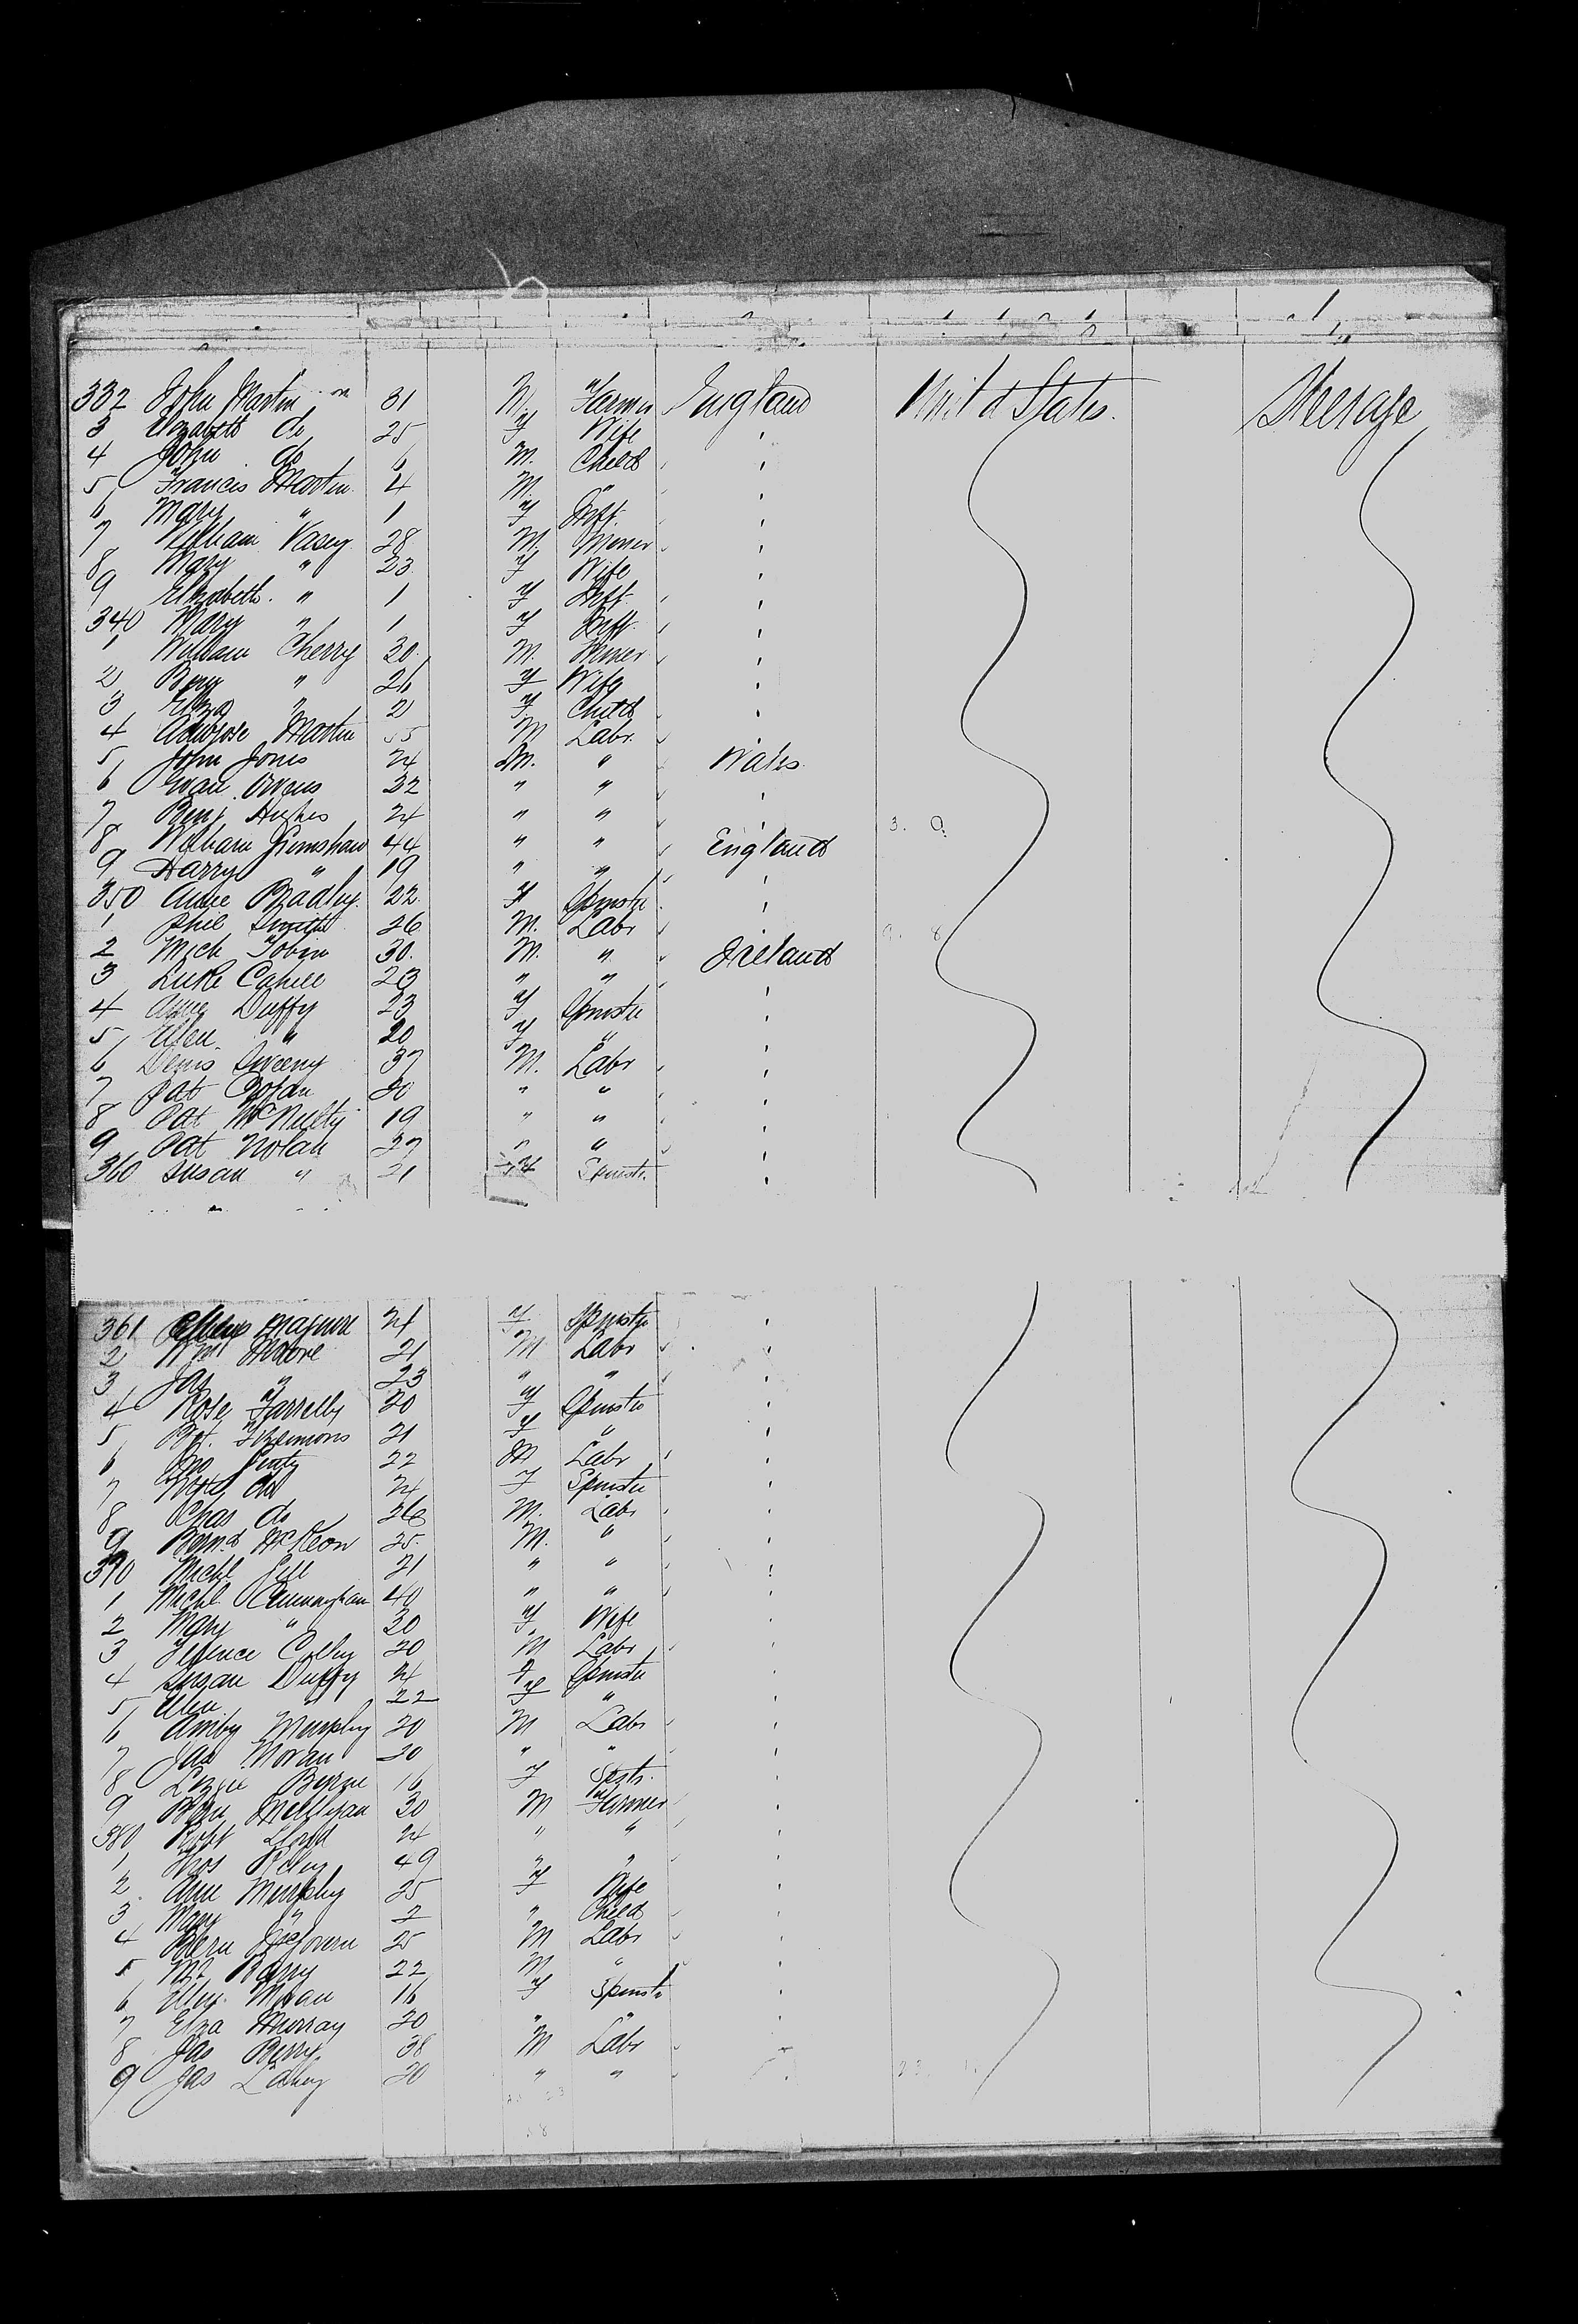 332 John Martin 31 M. Farmer England Unitd States. Steerage
3 Elizabeth do 25 F Wife "
4 John do 6 M. Child "
5 Francis Martin 4 M. " "
6 Mary " 1 F Inft. "
7 William Vasey 28 M. Miner "
8 Mary " 23 F Wife "
9 Elizabeth " 1 F Inft. "
340 Mary " 1 F Inft. "
1 William Cherry 30 M. Miner "
2 " 26 F Wife "
3 Eliza " 2 F Child "
4 Ambrose Martin 55 M Labr. "
5 John Jones 24 M. " Wales
6 Evan Owens 32 " " "
7 Benj Hughes 24 " " "
8 William Grimshaw 44 " " England
9 Harry " 19 " " "
350 Anne Bradley 22 F Spinstr "
1 Phil Smith 26 M. Labr "
2 Mich Tobin 30. M. " Ireland
3 Luke Cahill 23 " " "
4 Anne Duffy 23 F Spinstr "
5 Ellen " 20 F " "
6 Denis Sweeny 37 M. Labr "
7 Pat 20 " " "
8 Pat McNulty 19 " " "
9 Pat Nolan 27 " " "
360 Susan " 21 F Spinstr. "
361 Ellen Maguire 21 F Spinstr "
2 Wm Moore 21 M Labr "
3 Jas " 23 " " "
4 Rose Farrelly 20 F Spinstr "
5 Fitzsimons 21 F " "
6 22 M Labr "
7 do 24 F Spinstr "
8 Chas do 26 M. Labr "
9 Bernd McKeon 25. M. " "
370 Michl Gill 21 " " "
1 Michl Cunningham 40 " " "
2 Mary " 30 F Wife "
3 Terence 20 M Labr "
4 Susan Duffy 24 F Spinstr "
5 Ellen " 22 F " "
6 Amby Murphy 20 M Labr "
7 Jas Moran 20 " " "
8 Lizzie Byrne 16 F Spstr. "
9 Bern 30 M Farmer "
380 Robt Lloyd 24 " " "
1 Thos 49 " " "
2 Ann Murphy 25 F Wife "
3 Mary " 2 " Child "
4 Bern McGovern 25 M Labr "
5 Barry 22 M " "
6 Ellen Moran 16 F Spinstr "
7 Eliza Murray 20 " " "
8 Jas Berry 38 M Labr "
9 Jas Lahey 20 " "